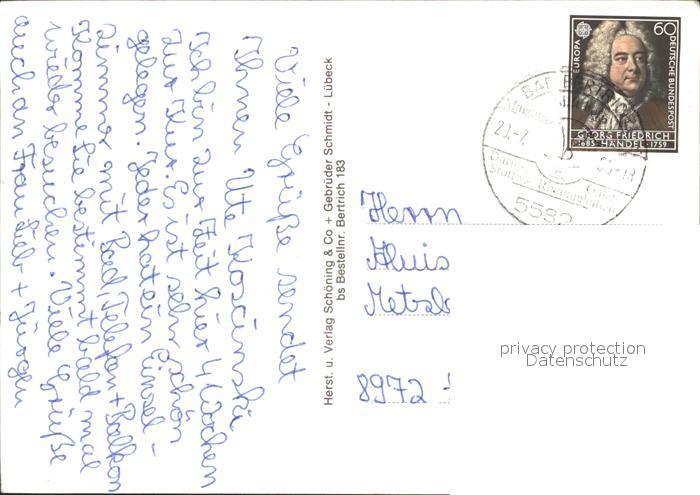 Viele Grüße sendet
Ihnen Ute
Ich bin zur Zeit hier 4 Wochen
zur Kur. Es ist sehr schön
gelegen. Jeder hat ein Einzel-
zimmer mit Bad, Telefon + Balkon
Komme Sie bestimmt bald mal
wieder besuchen. Viele Grüße
auch an Frau Sieb + Jürgen
Herst. u. Verlag Schöning & Co + Gebrüder Schmidt - Lübeck
bs Bestellnr. Bertrich 183
EUROPA
60
DEUTSCHE BUNDESPOST
GEORG FRIEDRICH
HÄNDEL
1685
1759
BAD BERTRICH
5582
Herrn
Aluis
8972
privacy protection
Datenschutz